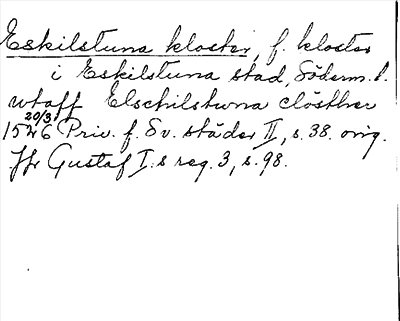 Eskilstuna kloster, f. kloster
i Eskilstuna stad, Söderm. l.
wtaff Elschilstwna clösther
20/3
1526 Priv. f. Sv. städer II, s. 38. orig.
Jfr Gustaf I:s reg. 3, s. 98.